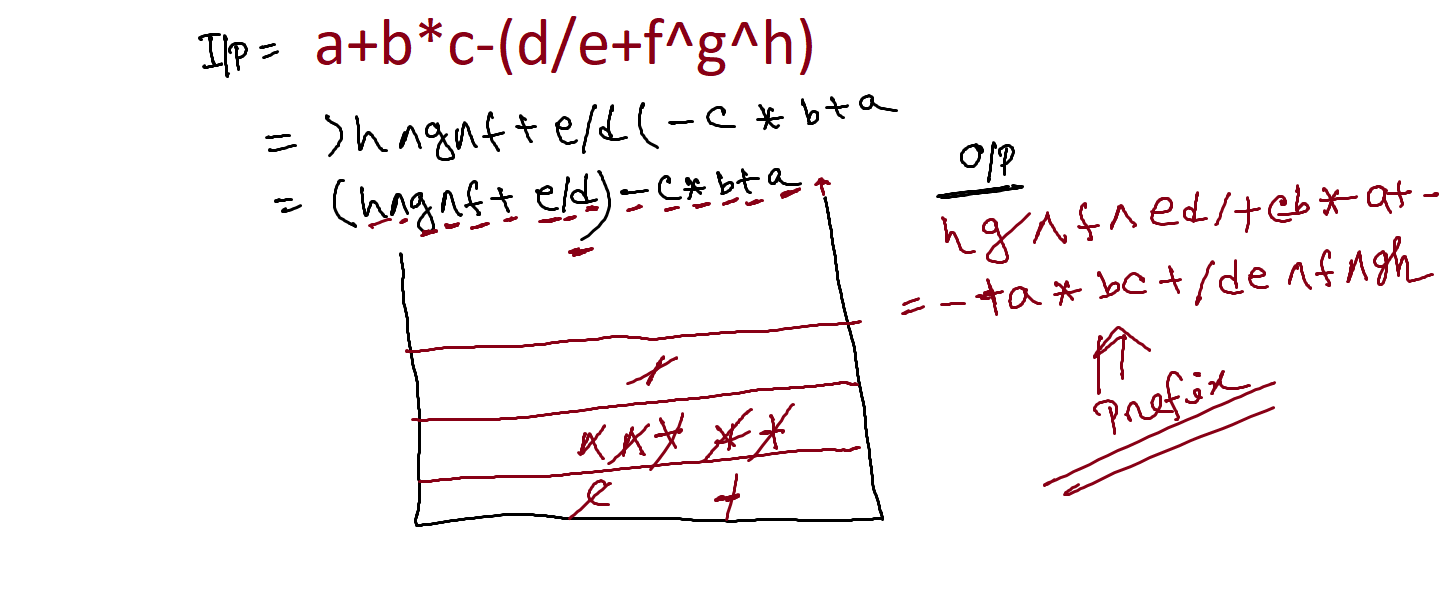 I/p = a+b*c-(d/e+f^g^h)
= )h^g^f+e/d(-c*b+a
= (h^g^f+e/d)-c*b+a
O/P
hg^f^ed/+cb*at-
= -+a*bc+/de^f^gh
Prefix